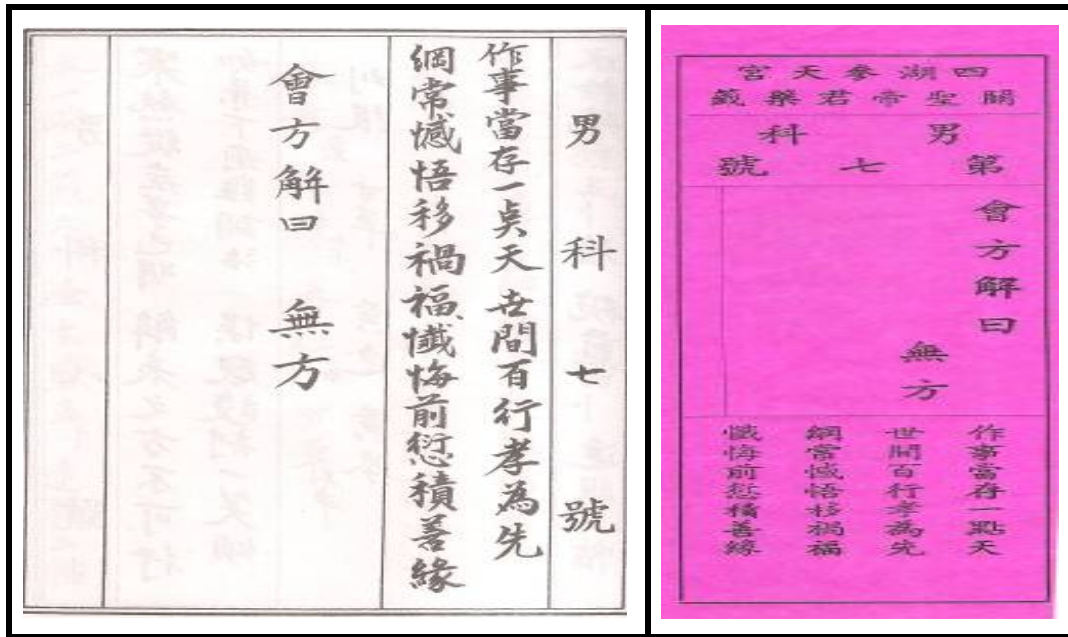 男科七號
作事當存一点天世間百行孝為先
綱常憾悟移禍福懺悔前愆積善緣
會方解曰 無方
四湖參天宮
關聖帝君藥籤
男科
第七號
會方解曰
無方
作事當存一點天
世間百行孝為先
綱常憾悟移禍福
懺悔前愆積善緣